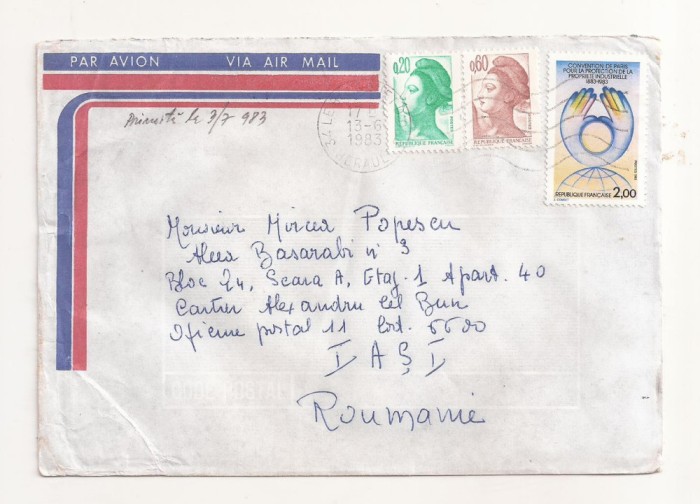 PAR AVION VIA AIR MAIL
le 3/7 983
0,20
REPUBLIQUE FRANÇAISE
0,60
REPUBLIQUE FRANÇAISE
CONVENTION DE PARIS
POUR LA PROTECTION DE LA
PROPRIÉTÉ INDUSTRIELLE
1883-1983
REPUBLIQUE FRANÇAISE 2,00
13-6
1983
HERAULT
Monsieur Mircea Popescu
Aleea Basarabi n° 3
Bloc 24, Scara A, Etaj 1 Apart. 40
Cartier Alexandru cel Bun
Oficiul postal 11 Cod. 6600
IAŞI
Roumanie